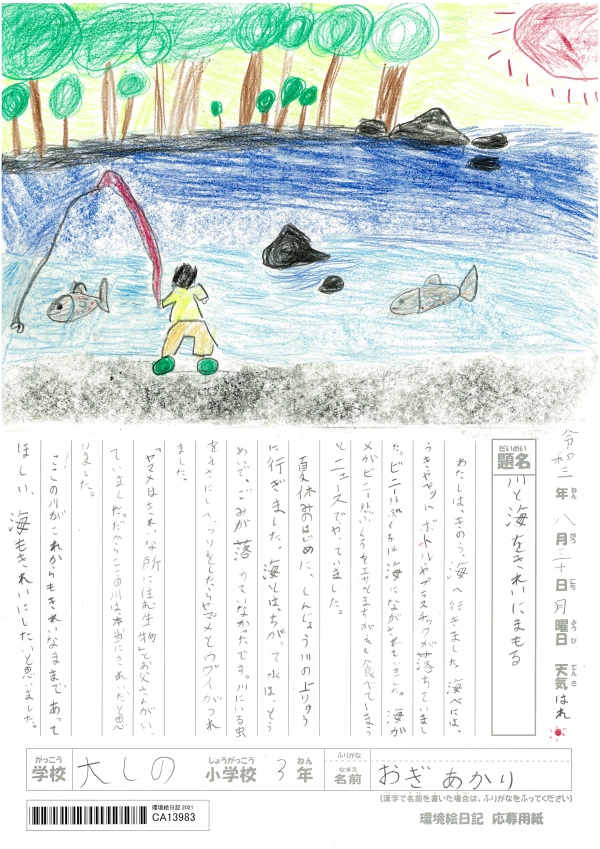 令和三年八月三十日月曜日 天気はれ
題名 川と海をきれいにまもる
わたしは、きのう、海へ行きました。海べには、
うきやペットボトルやプラスチックが落ちていまし
た。ビニールぶくろは海にながされていました。海が
メがビニールぶくろをエサとまちがえて食べてしまう
とニュースでやっていました。
夏休みのはじめに、しんじょう川の上りゅう
に行ぎました。海とは、ちがって水は、とう
めいで、ごみが落っていなかったです。川にいる虫
をえさにして、つりをしたらヤマメとウグイがつれ
ました。
「ヤマメはきれいな所に住む生物」とお父さんがい
っていました。だからここの川は、本当にきれいだと思
いました。
ここの川がこれからもきれいなままであって
ほしい、海もきれいにしたいと思いました。
学校 大しの 小学校 3年 ふりがな 名前 おぎ あかり
(漢字で名前を書いた場合は、ふりがなをふってください)
環境絵日記2021
CA13983
環境絵日記 応募用紙